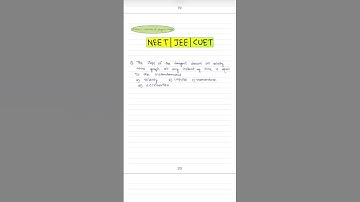 NEET | JEE | CUET
Q The slope of the tangent drawn on velocity
time graph at any instant of time is equal
to the instantaneous
a) velocity b) impulse c) momentum
d) acceleration